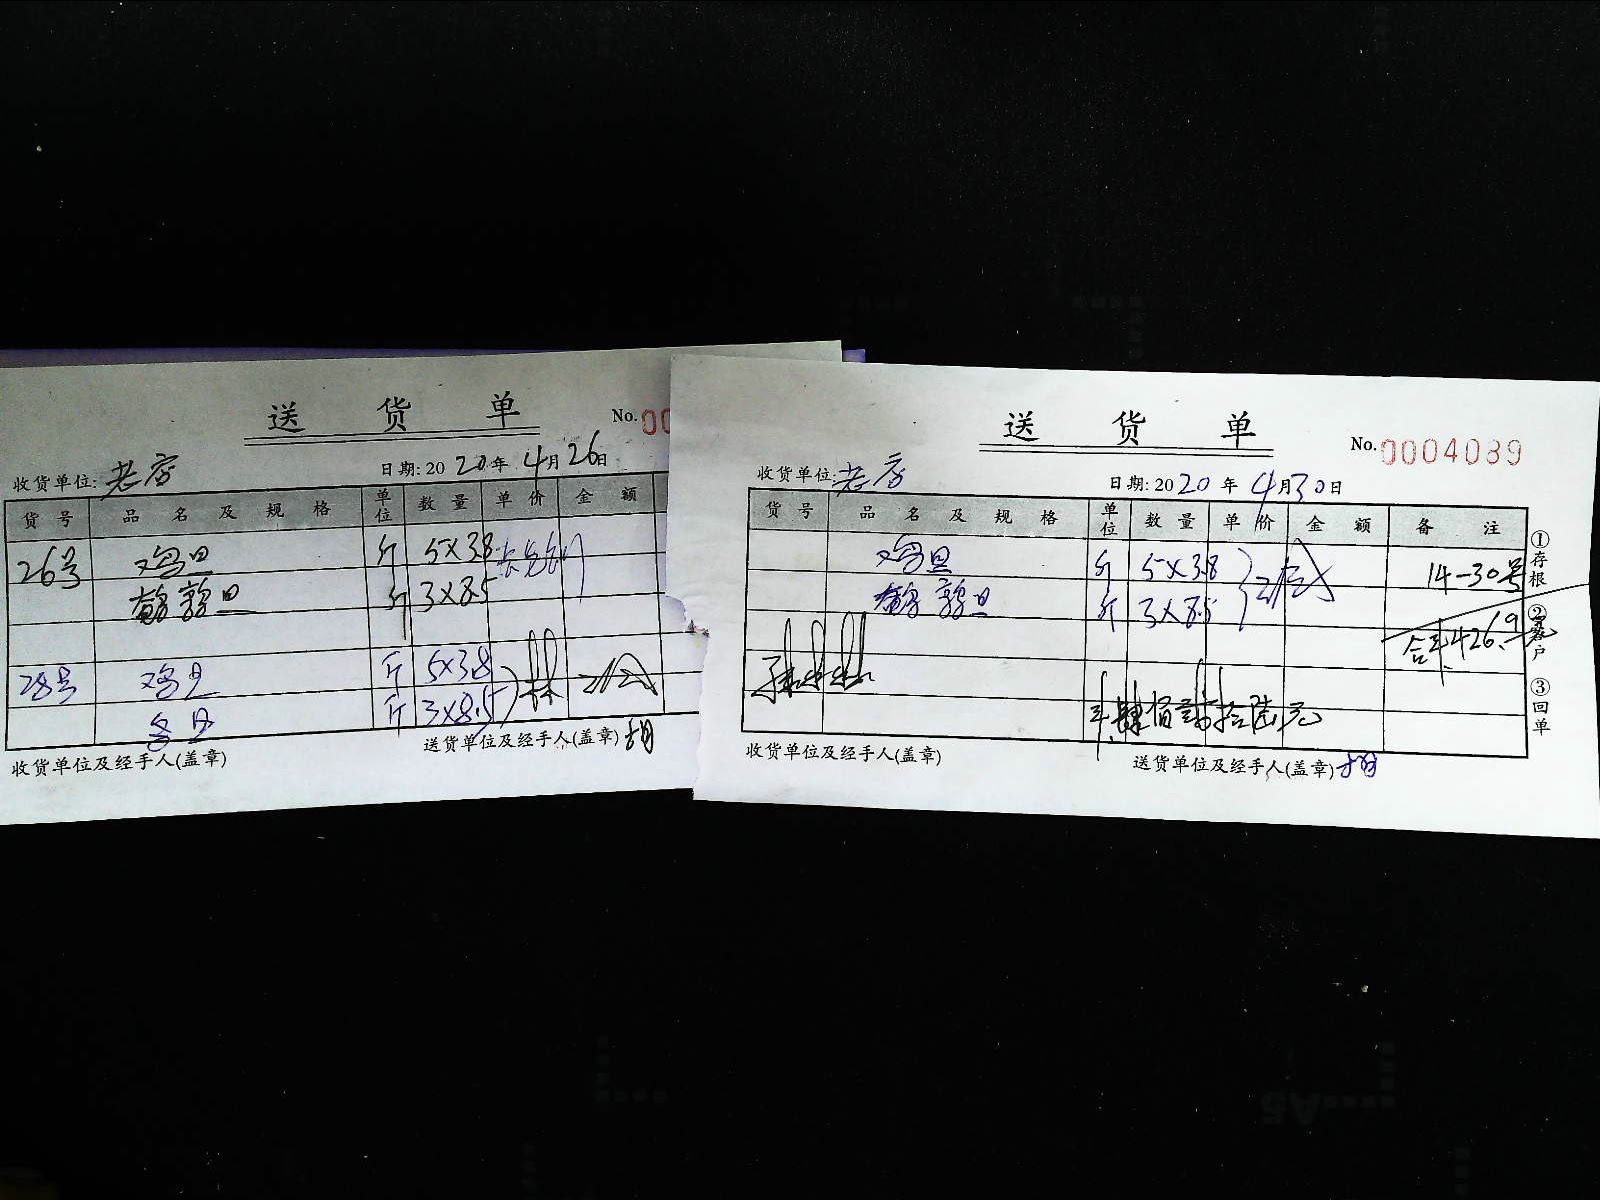 送货单
No.00
收货单位: 老店
日期: 2020年4月26日
货号 品名及规格 单位 数量 单价 金额
26号 鸡旦 斤 5×3.8
鹌鹑旦 斤 3×8.5
28号 鸡旦 斤 5×3.8
斤 3×8.5
收货单位及经手人(盖章)
送货单位及经手人(盖章) 胡
送货单
No.0004089
收货单位: 老店
日期: 2020年4月30日
货号 品名及规格 单位 数量 单价 金额 备注
鸡旦 斤 5×3.8 14-30号
鹌鹑旦 斤 3×8.5
合计426.9
肆佰贰拾陆元
收货单位及经手人(盖章)
送货单位及经手人(盖章) 胡
①存根
②客户
③回单